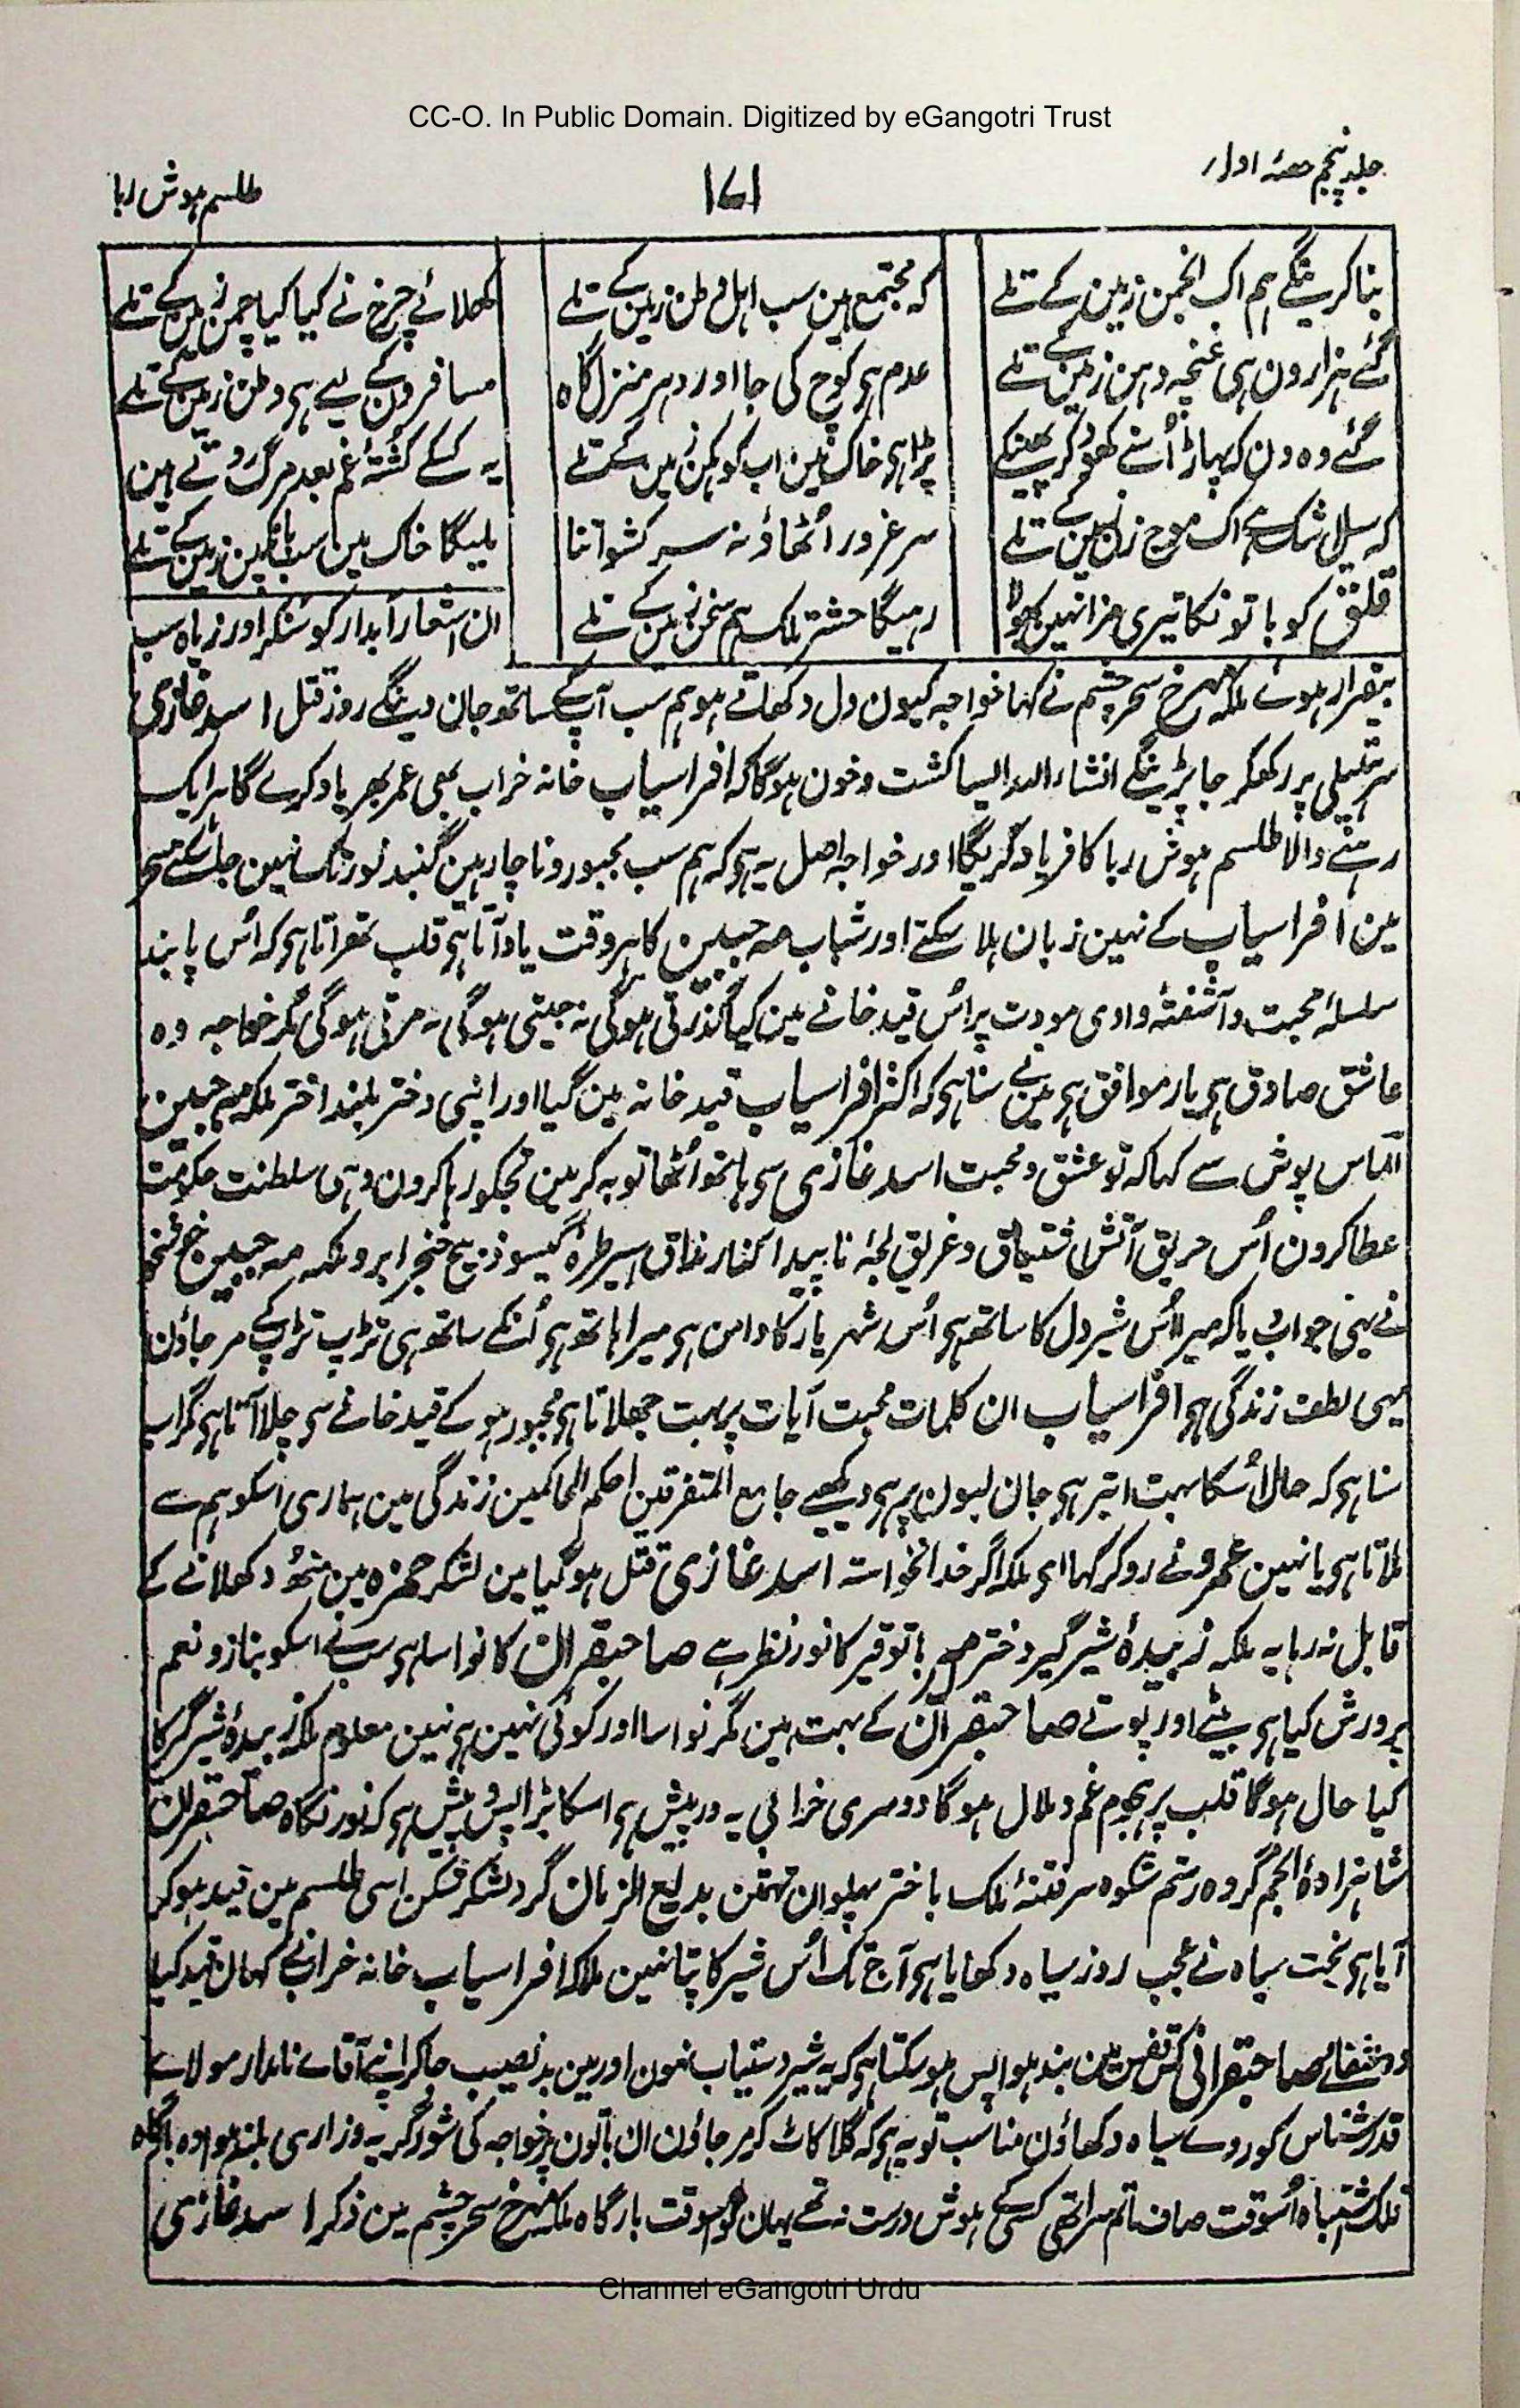 CC-O. In Public Domain. Digitized by eGangotri Trust
جلد پنجم حصۂ اول
۱۷۱
طلسم ہوش ربا
بنا کرینگے ہم اک انجمن زمین کے تلے
کہ مجتمع ہین سب اہل وطن زمین کے تلے
کھلائے چرخ نے کیا کیا چمن زمین کے تلے
گئے ہزارون ہی غنچہ دہن زمین کے تلے
عدم ہی کوچ کی جا اور دہر منزل گاہ
مسافرون کے لیے ہی وطن زمین کے تلے
گئے وہ دن کہ پہاڑ اُسنے کھود کر پھینکے
پڑا ہی خاک مین اب کوہکن زمین کے تلے
یہ کسکے کشتۂ غم بعد مرگ روتے ہین
کہ سیل اشک ہے اک موج زن زمین کے تلے
سر غرور اُٹھاؤ نہ سرکشو اتنا
ملیگا خاک مین سب بانکپن زمین کے تلے
قلق کو با تو نکا تیری مزا نہین بھولا
رہیگا حشر تلک ہم سخن زمین کے تلے
ان اشعار آبدار کو سُنکر اور زیادہ سب
بیقرار ہوئے ملکہ مہرخ سحر چشم نے کہا خواجہ کیون دل دکھاتے ہو ہم سب آپکے ساتھ جان دینگے روز قتل اسد غازی
سر ہتیلی پر رکھکر جا پڑینگے انشاء اللہ ایسا کشت و خون ہوگا کہ افراسیاب خانہ خراب بھی عمر بھر یاد کرے گا ہر ایک
رہنے والا طلسم ہوش ربا کا فریاد کریگا اور خواجہ اصل یہ ہی کہ ہم سب مجبور و ناچار ہین گنبد نور تک نہین جا سکتے سحر
مین افراسیاب کے نہین زبان ہلا سکتے اور شباب مہ جبین کا ہر وقت یاد آتا ہی قلب تھراتا ہی کہ اُس پابند
سلسلۂ محبت و آشفتۂ وادی مودت پر اُس قید خانے مین کیا گذرتی ہوگی نہ جیتی ہوگی نہ مرتی ہوگی مگر خواجہ وہ
عاشق صادق ہی یار موافق ہی مین نے سُنا ہی کہ اکثر افراسیاب قید خانہ مین گیا اور اپنی دختر بلند اختر ملکہ مہ جبین
الماس پوش سے کہا کہ تو عشق و محبت اسد غازی سی ہاتھ اُٹھا توبہ کر مین تجکو رہا کرون وہی سلطنت حکومت
عطا کرون اُس حریق آتش اشتیاق و غریق لجۂ ناپیدا کنار فراق اسیر طرۂ گیسو ذبیح خنجر ابرو ملکہ مہ جبین
نے یہی جواب دیا کہ میرا اُس شیر دل کا ساتھ ہی اُس شہر یار کا دامن ہی میرا ہاتھ ہی اُنکے ساتھ ہی تڑپ تڑپ کے مر جاؤن
یہی لطف زندگی ہی افراسیاب ان کلمات محبت آیات پر بہت جھلاتا ہی مجبور ہو کے قید خانے سی چلا آتا ہی مگر اب
سُنا ہی کہ حال اُسکا بہت ابتر ہی جان لبون پر ہی دیکھیے جامع المتفرقین احکم الحاکمین زندگی مین ہماری اُسکو ہم سے
ملاتا ہی یا نہین عمرو نے رو کر کہا ای ملکہ اگر خدا نخواستہ اسد غازی قتل ہو گیا مین لشکر حمزہ مین منھ دکھلانے کے
قابل نہ رہا یہ ملکہ زبیدۂ شیر گیر دختر باتوقیر کا نور نظر ہے صاحبقران کا نواسا ہی سبنے اسکو بناز و نعم
پرورش کیا ہی بیٹے اور پوتے صاحبقران کے بہت ہین مگر نواسا اور کوئی نہین ہی نہین معلوم ملکہ زبیدۂ شیر گیر کا
کیا حال ہوگا قلب پر ہجوم غم و ملال ہوگا دوسری خرابی یہ درپیش ہی اسکا بڑا پس و پیش ہی کہ نور نگاہ صاحبقران
شاہزادۂ انجم گروہ رستم شکوہ سر فتنۂ ملک باختر پہلوان تہمتن بدیع الزمان گرد لشکر شکن اسی طلسم مین قید ہو کر
آیا ہی بخت سیاہ نے عجب روز سیاہ دکھایا ہی آج تک اُس شیر کا پتا نہین ملا کہ افراسیاب خانہ خراب نے کہان قید کیا
صاحبقرانی کس قفس مین بند ہوا پس ہو سکتا ہی کہ یہ شیر دستیاب نہون اور مین بد نصیب جا کر اپنے آقاے نامدار مولاے
قدر شناس کو روے سیاہ دکھاؤن مناسب تو یہ ہی کہ گلا کاٹ کر مر جاؤن ان باتون پر خواجہ کی شور گریہ و زاری بلند ہوا وہ بارگاہ
فلک اشتباہ اُسوقت صاف ماتم سرا تھی کسی کے ہوش درست نہ تھے یہان تو اسوقت بارگاہ ملکہ مہرخ سحر چشم مین ذکر اسد غازی
Channel eGangotri Urdu